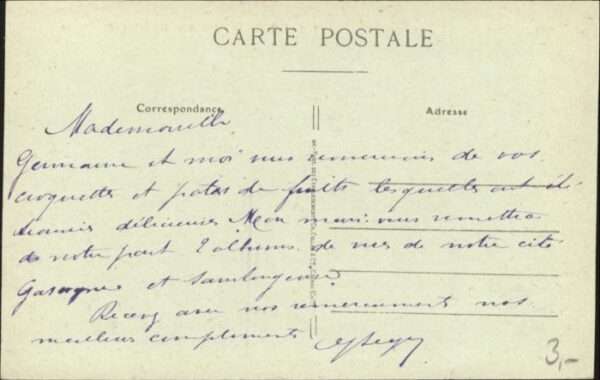 CARTE POSTALE
Correspondance
Adresse
Mademoiselle
Germaine et moi vous remercions de vos
croquettes et pates de fruits lesquelles ont été
trouvées délicieuses Mon mari vous remettra
de notre part 2 albums de vues de notre cité
et
Recevez avec nos remerciements nos
meilleurs compliments
3,-